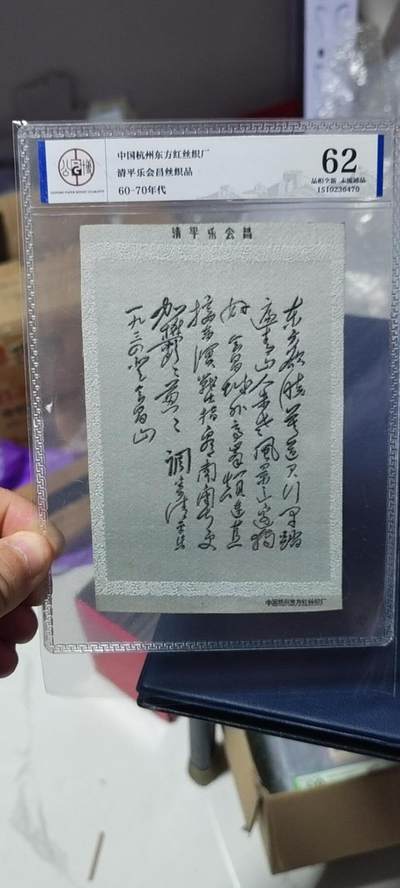 中国杭州东方红丝织厂
清平乐会昌丝织品
60-70年代
62
品相全新 未流通品
1510236470
清平乐会昌
东方欲晓莫道君行早踏
遍青山人未老风景这边独
好会昌城外高峰颠连直
接东溟战士指看南粤更
加郁々葱々
调寄清平乐
一九三四登会昌山
中国杭州东方红丝织厂